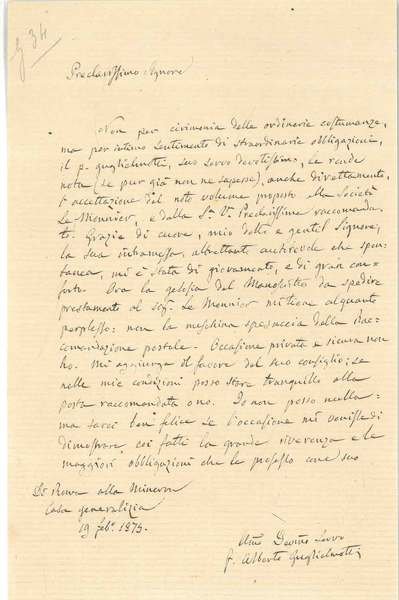 g 34
Preclarissimo Signore
Non per cirimonia delle ordinarie costumanze,
ma per intimo sentimento di straordinarie obbligazioni,
il p. guglielmotti, suo servo devotissimo, Le rende
nota (se pur già non ne sapesse), anche direttamente,
l'accettazione del noto volume proposto alla Società
Le Monnier, e dalla S.a V.a Preclarissima raccomanda-
to. Grazie di cuore, mio dotto e gentil Signore;
la sua intramessa, altrettanto autorevole che spon-
tanea, mi è stata di giovamento, e di gran con-
forto. Ora la gelosia del Manoscritto da spedire
prestamente al sig. Le Monnier mi tiene alquanto
perplesso: non la meschina spesaccia della Rac-
comandazione postale. Occasione privata e sicura non
ho. Mi aggiunga il favore del suo consiglio; se
nelle mie condizioni posso stare tranquillo alla
posta raccomandata o no. Io non posso nulla:
ma sarei ben felice se l'occasione mi venisse di
dimostrare coi fatti la grande riverenza e le
maggiori obbligazioni che le professo come suo
Di Roma alla Minerva
Casa generalizia
19 feb. 1875.
Umo Devmo Servo
f. Alberto Guglielmotti